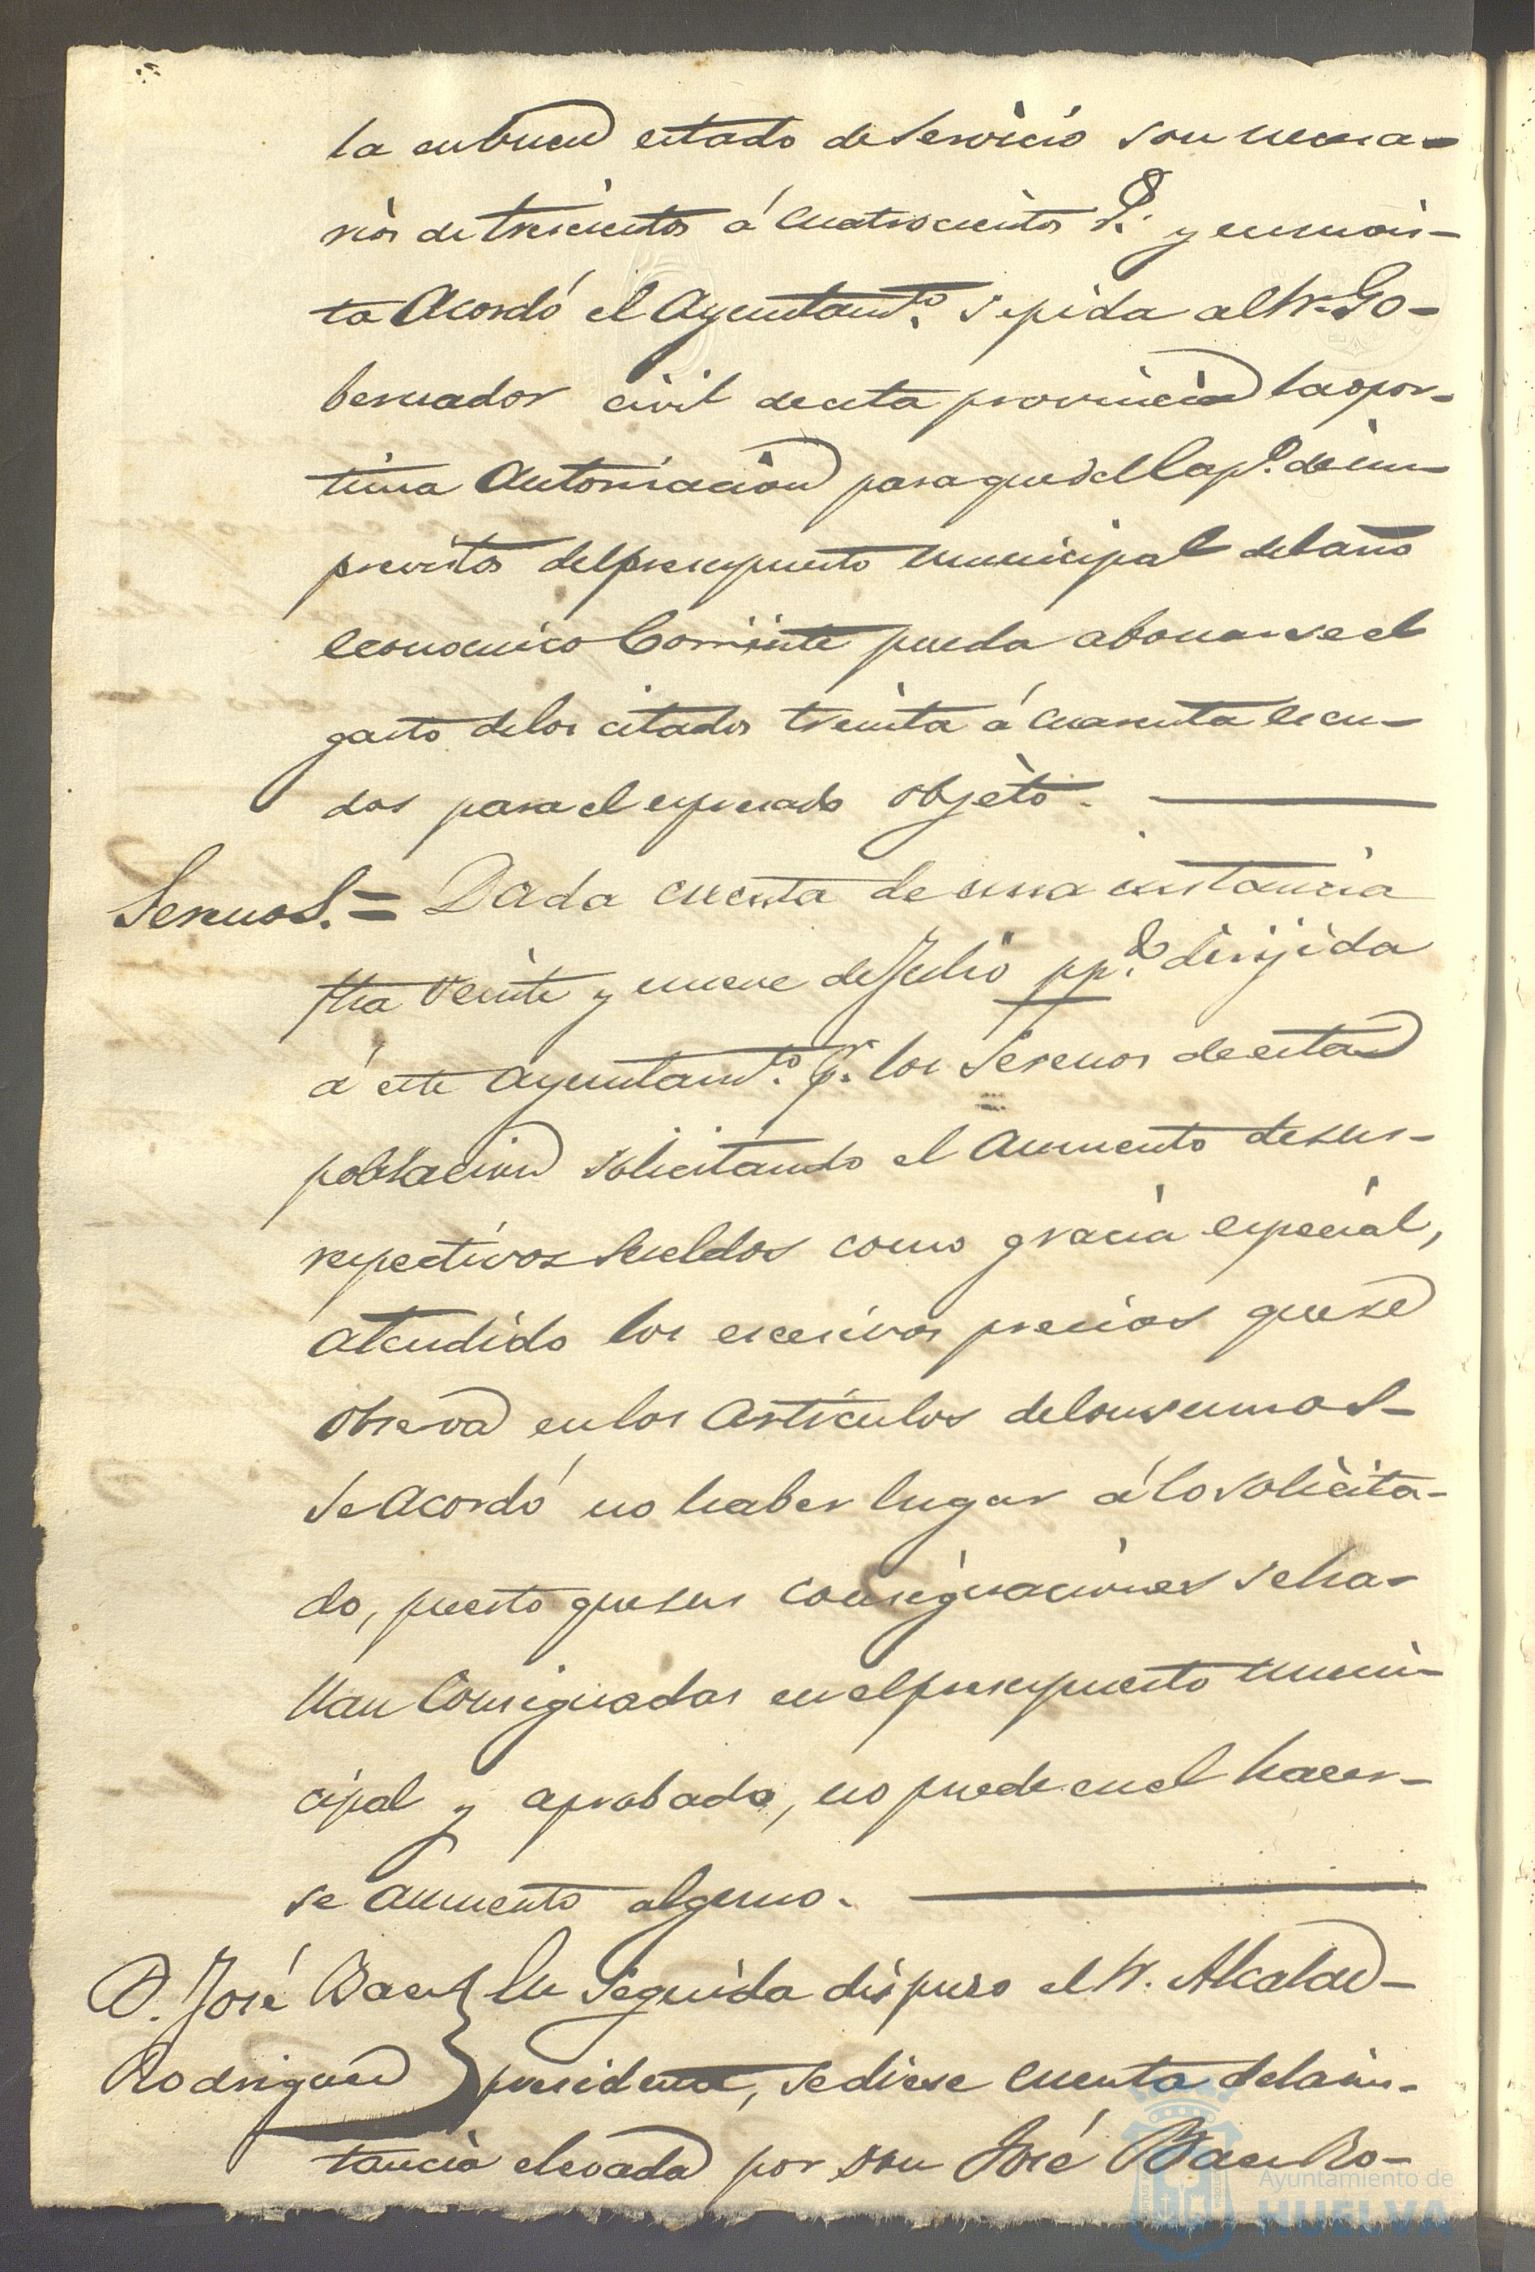 la en buen estado de servicio son necesa-
rios de trescientos á cuatrocientos r.s y en su vis-
ta Acordó el Ayuntam.to se pida al Sr. Go-
bernador civil de esta provincia la opor-
tuna Autorizacion para que del Cap.o de im-
previstos del presupuesto municipal del año
economico Corriente pueda abonarse el
gasto de los citados treinta á cuarenta escu-
dos para el espresado objeto. —
Serenos. = Dada cuenta de una instancia
fha veinte y nueve de Julio pp.do dirijida
á este Ayuntam.to p.r los Serenos de esta
poblacion solicitando el Aumento de sus-
respectivos sueldos como gracia especial,
atendido los escesivos precios que se
observa en los Artículos de consumos-
se Acordó no haber lugar á lo solicita-
do, puesto que sus consignaciones se ha-
llan Consignadas en el presupuesto muni-
cipal y aprobado, no puede en el hacer-
se aumento alguno. —
D. José Baez
Rodriguez
En seguida dispuso el Sr. Alcalde-
presidente, se diese cuenta de la ins-
tancia elevada por don José Baez Ro-
Ayuntamiento de
HUELVA